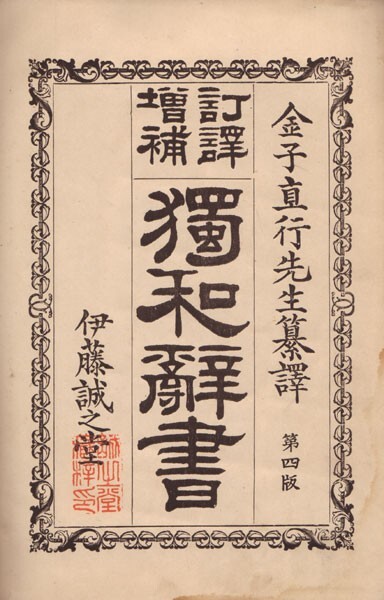 金子直行先生纂譯
第四版
訂譯
增補
獨和辭書
伊藤誠之堂